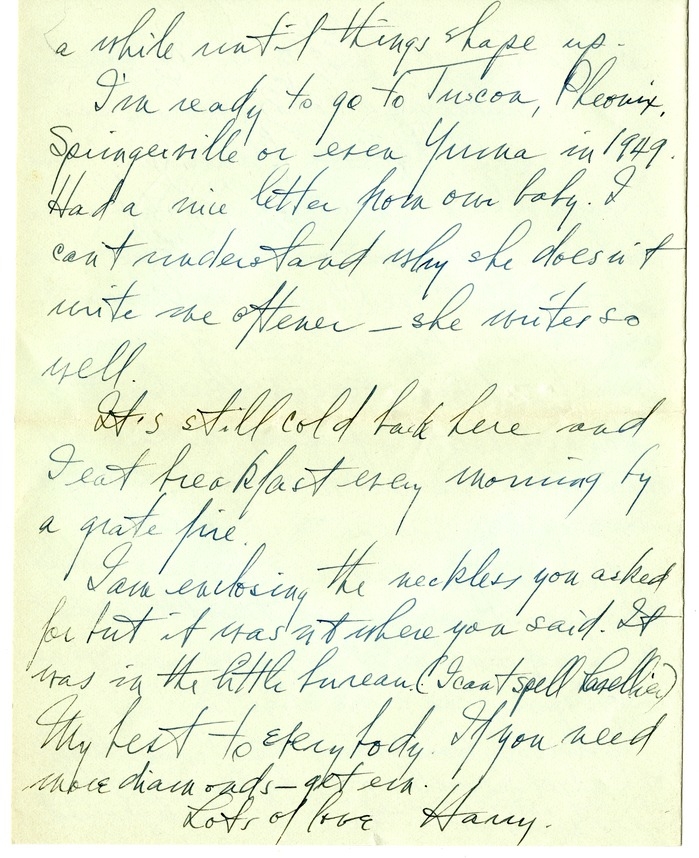 a while until things shape up.
I'm ready to go to Tuscon, Pheonix,
Springerville or even Yuma in 1949.
Had a nice letter from our baby. I
can't understand why she doesn't
write me oftener – she writes so
well.
It's still cold back here and
I eat breakfast every morning by
a grate fire.
I am enclosing the neckless you asked
for but it wasn't where you said. It
was in the little bureau. (I can't spell
My best to everybody. If you need
more diamonds – get em.
Lots of love Harry.